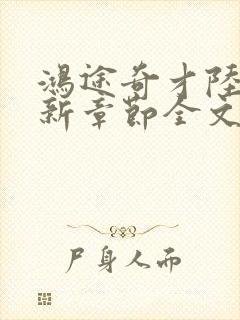 鴻途奇才陸
新章節全文
尸身人而